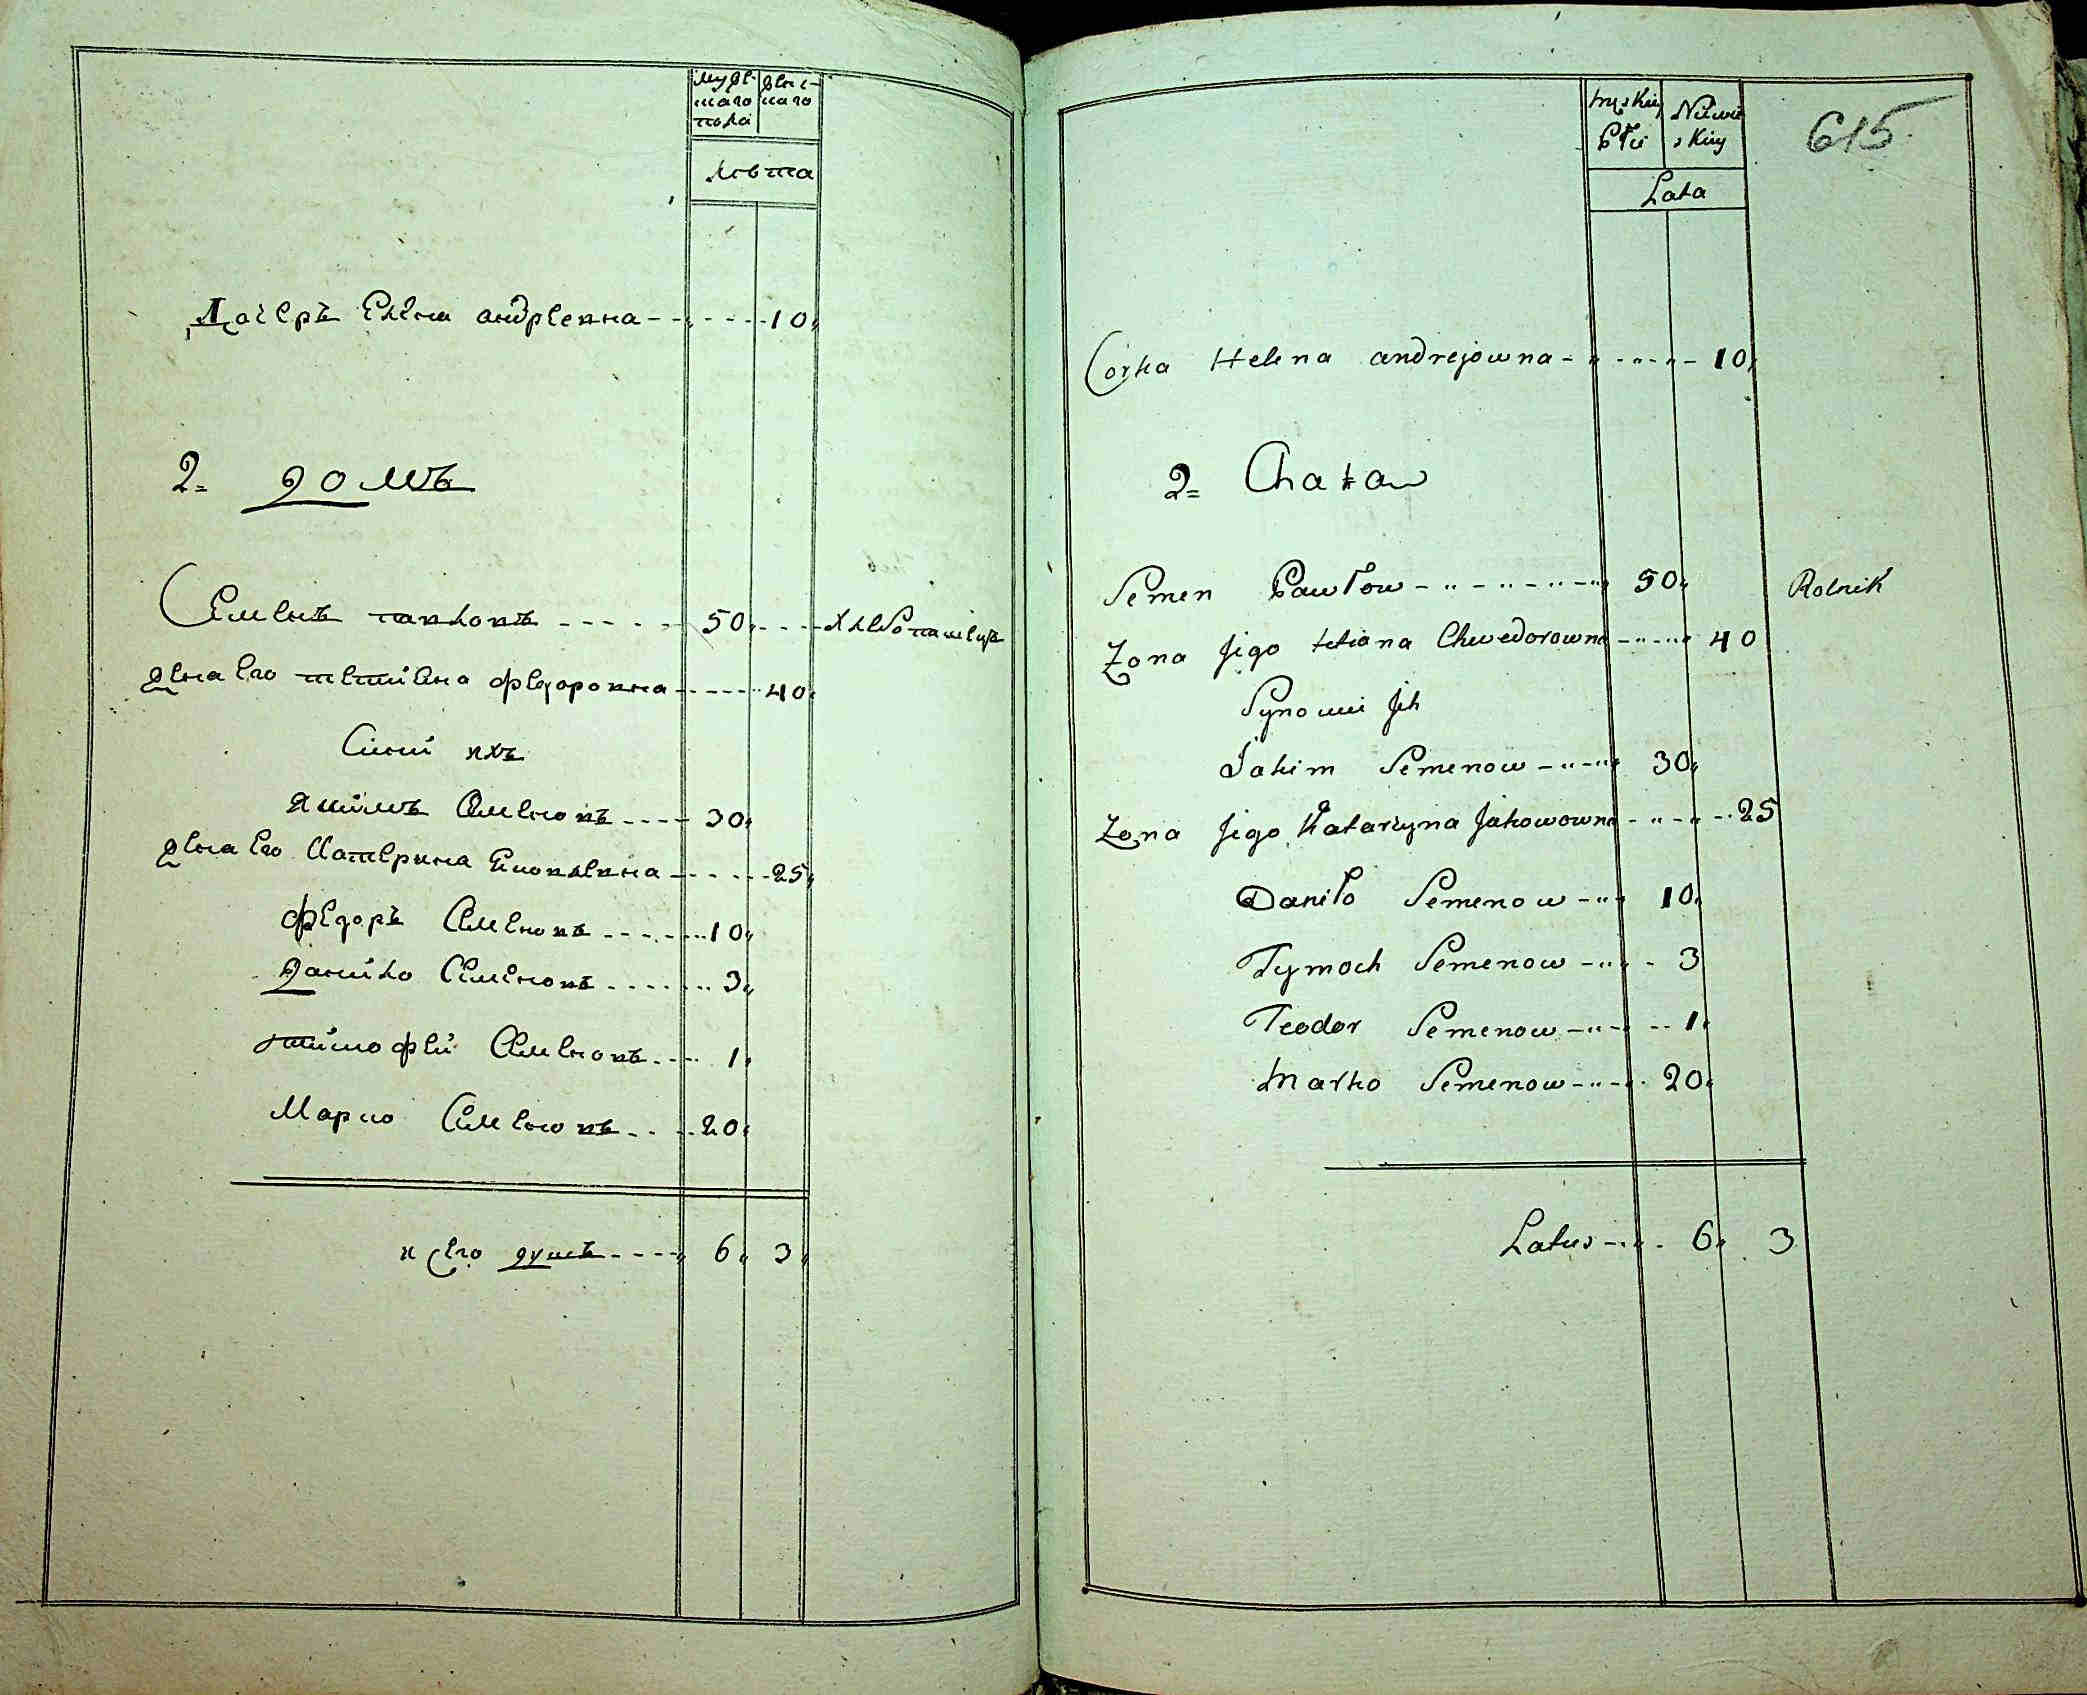 мужескаго пола женскаго
лѣта
Дочеръ Елена андреевна 10
2 = домъ
Семенъ павловъ 50 хлѣбопашецъ
жена Его татиана федоровна 40
Сини ихъ
якимъ Семеновъ 30
жена Его Катерина Яковлевна 25
федоръ Семеновъ 10
данило Семеновъ 3
тимофей Семеновъ 1
Марко Семеновъ 20
всего душъ 6 3
męskiey płci Niewieskiey
615
Lata
Corka Helena andrejowna 10
2 = Chata
Semen Pawłow 50 Rolnik
Zona Jego tetiana Chwedorowna 40
Synowie Jch
Jakim Semenow 30
Zona Jego Katarzyna Jakowowna 25
Daniło Semenow 10
Tymoch Semenow 3
Teodor Semenow 1
Marko Semenow 20
Latus 6 3